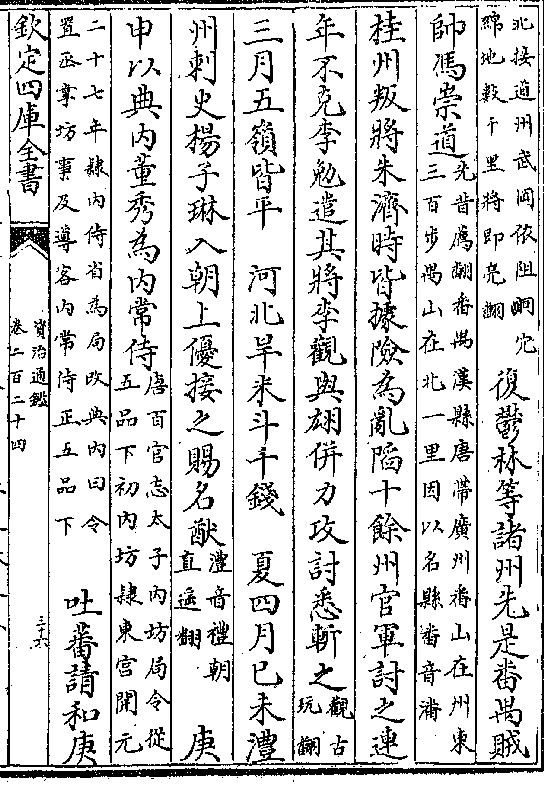 北接道州武岡依阻峒穴
綿地數千里將即亮翻
復鬱林等諸州先是番禺賊
帥馮崇道
先昔薦翻番禺漢縣唐帶廣州番山在州東
三百步禺山在北一里因以名縣番音潘
桂州叛將朱濟時皆據險為亂陷十餘州官軍討之連
年不克李勉遣其將李觀與翃併力攻討悉斬之
觀古
玩翻
三月五嶺皆平 河北旱米斗千錢 夏四月己未澧
州刺史楊子琳入朝上優接之賜名猷
澧音禮朝
直遥翻
庚
申以典内董秀為内常侍
唐百官志太子内坊局令從
五品下初内坊隷東宫開元
二十七年隷内侍省為局改典内曰令
置丞掌坊事及導客内常侍正五品下
吐蕃請和庚
欽定四庫全書
資治通鑑
卷二百二十四
三十六